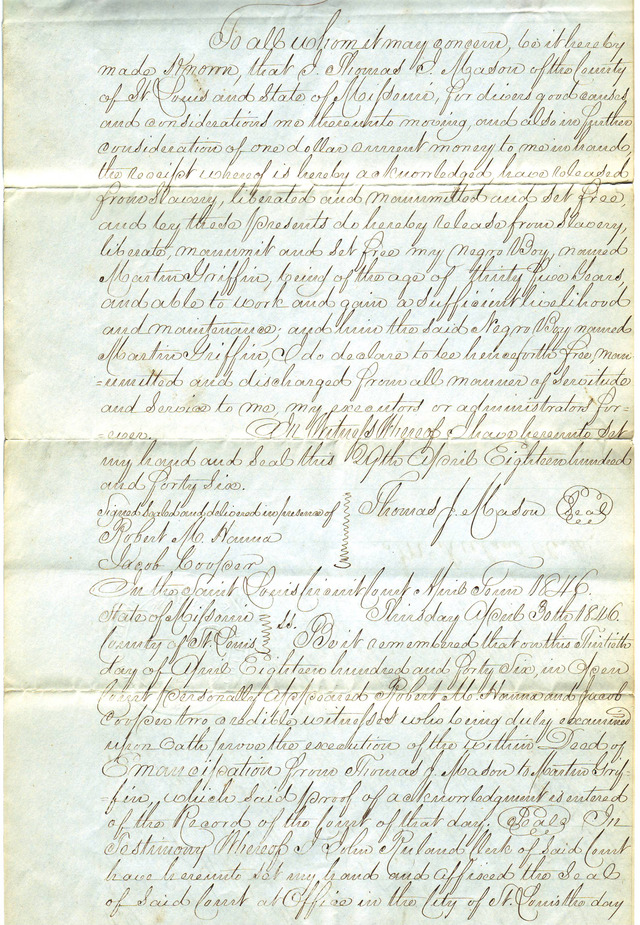 To all whom it may concern, be it hereby
made Known, that I Thomas J. Mason of the County
of St Louis and State of Missouri, for divers good causes
and considerations me thereunto moving, and also in further
consideration of one dollar current money to me in hand,
the receipt whereof is hereby acknowledged have released
from slavery, liberated and manumitted and set free,
and by these presents do hereby release from slavery,
liberate, manumit and set free my Negro Boy, named
Martin Griffin, being of the age of thirty five years
and able to work and gain a sufficient livelihood
and maintenance, and him the said Negro Boy named
Martin Griffin, I do declare to be henceforth free, man
=umitted and discharged from all manner of Servitude
and Service to me, my executors or administrators for-
=ever. In Witness Whereof I have hereunto set
my hand and seal this 29th April Eighteen hundred
and forty six.
Signed sealed and delivered in presence of
Thomas J. Mason Seal
Robert M. Hanna
Jacob Cooper
In the Saint Louis Circuit Court April Term 1846.
State of Missouri
ss. Thursday April 30th 1846.
County of St. Louis
Be it remembered that on this Thirtieth
day of April Eighteen hundred and forty six, in open
Court personally appeared Robert M. Hanna and Jacob
Cooper two credible witnesses who being duly examined
upon oath prove the execution of the within Deed of
Emancipation from Thomas J. Mason to Martin Grif-
=fin, which said proof of acknowledgment is entered
of the Record of the Court of that day. Seal In
Testimony Whereof I John Ruland Clerk of said Court
have hereunto set my hand and affixed the Seal
of said Court at Office in the City of St. Louis the day